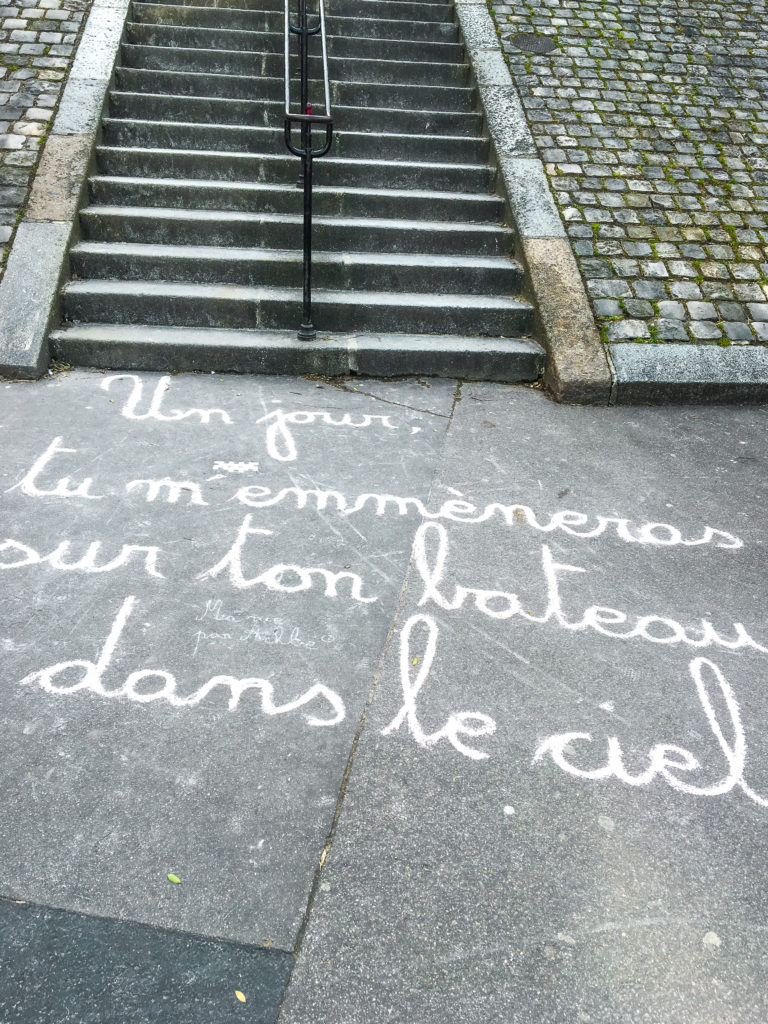 Un jour,
tu m'emmèneras
sur ton bateau
dans le ciel